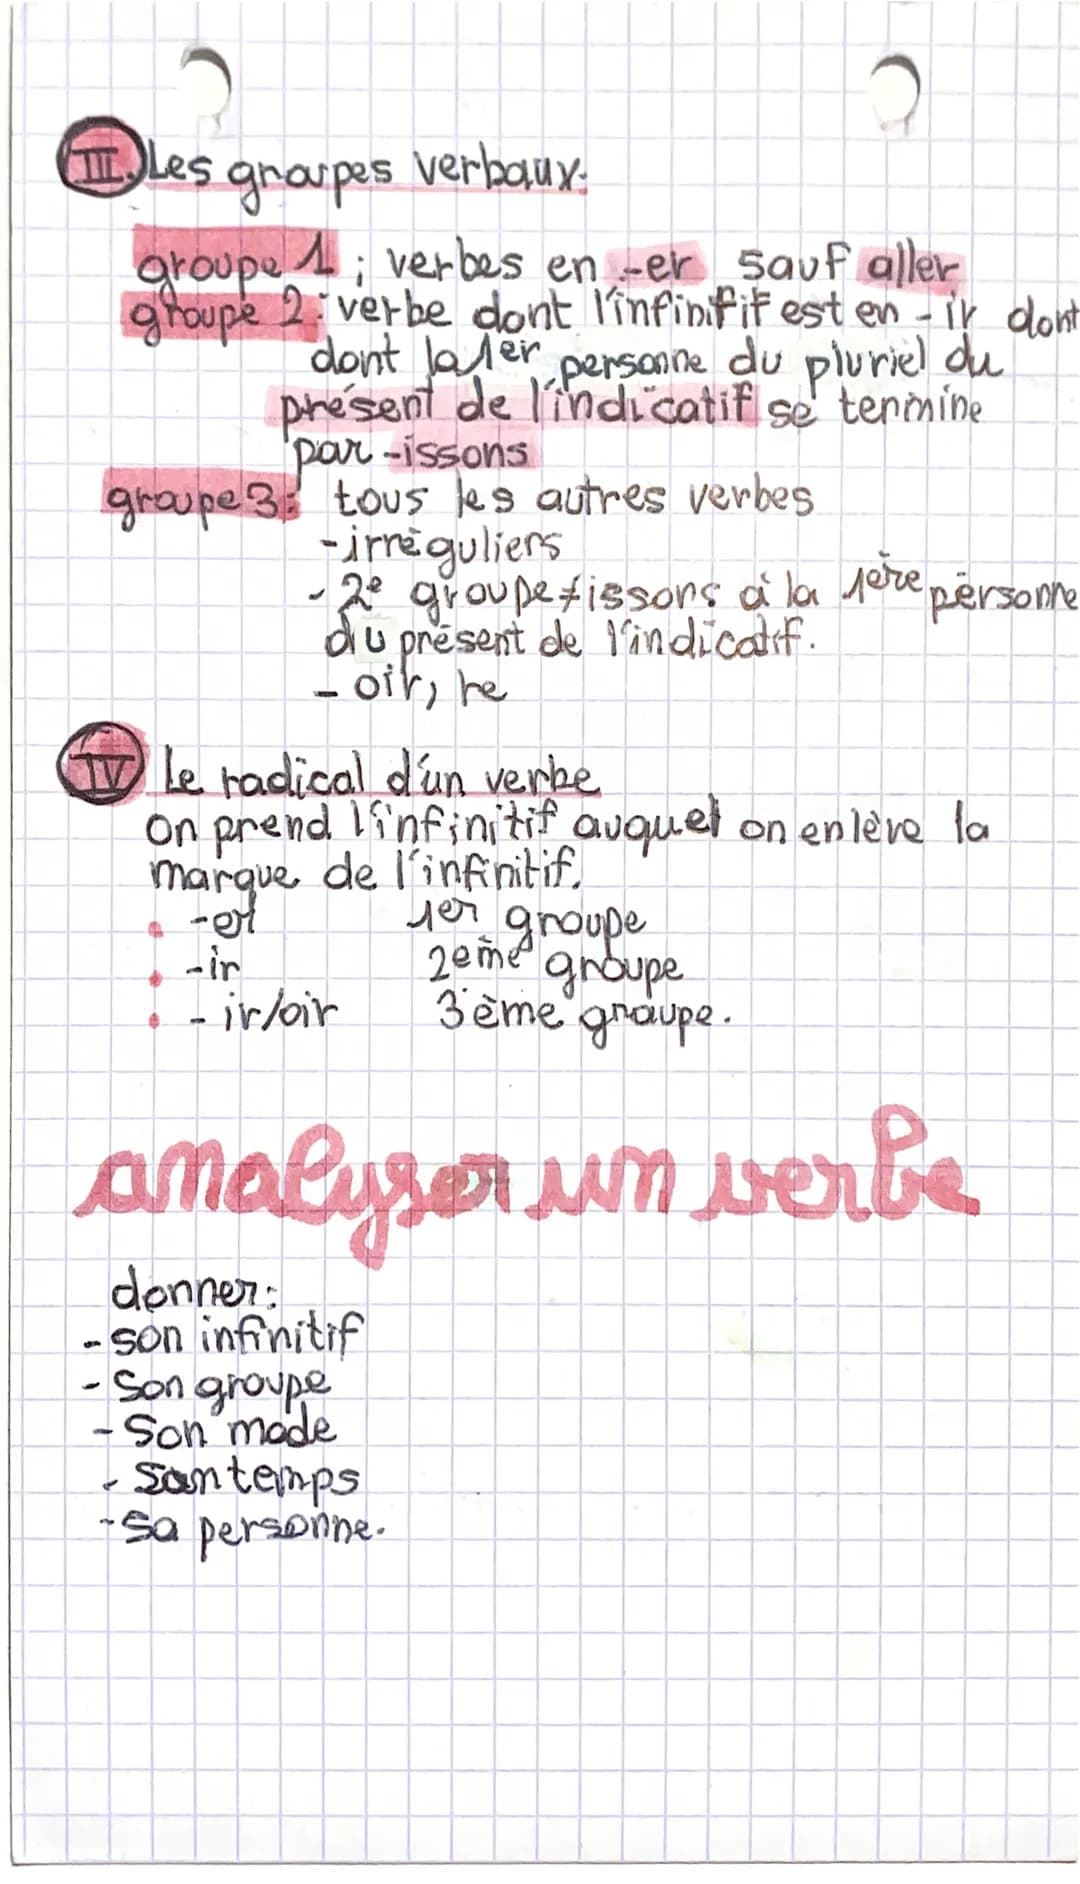 III. Les groupes verbaux.
groupe 1 ; verbes en -er sauf aller
groupe 2 : verbe dont l'infinitif est en -ir dont
dont la 1er personne du pluriel du
présent de l'indicatif se termine
par -issons
groupe 3 : tous les autres verbes
-irréguliers
- 2e groupe ≠ issons à la 1ère personne
du présent de l'indicatif.
- oir, re
IV Le radical d'un verbe
On prend l'infinitif auquel on enlève la
marque de l'infinitif.
• -er 1er groupe
• -ir 2ème groupe
• - ir/oir 3ème groupe.
analyser un verbe
donner :
- son infinitif
- Son groupe
- Son mode
- Son temps
- Sa personne.